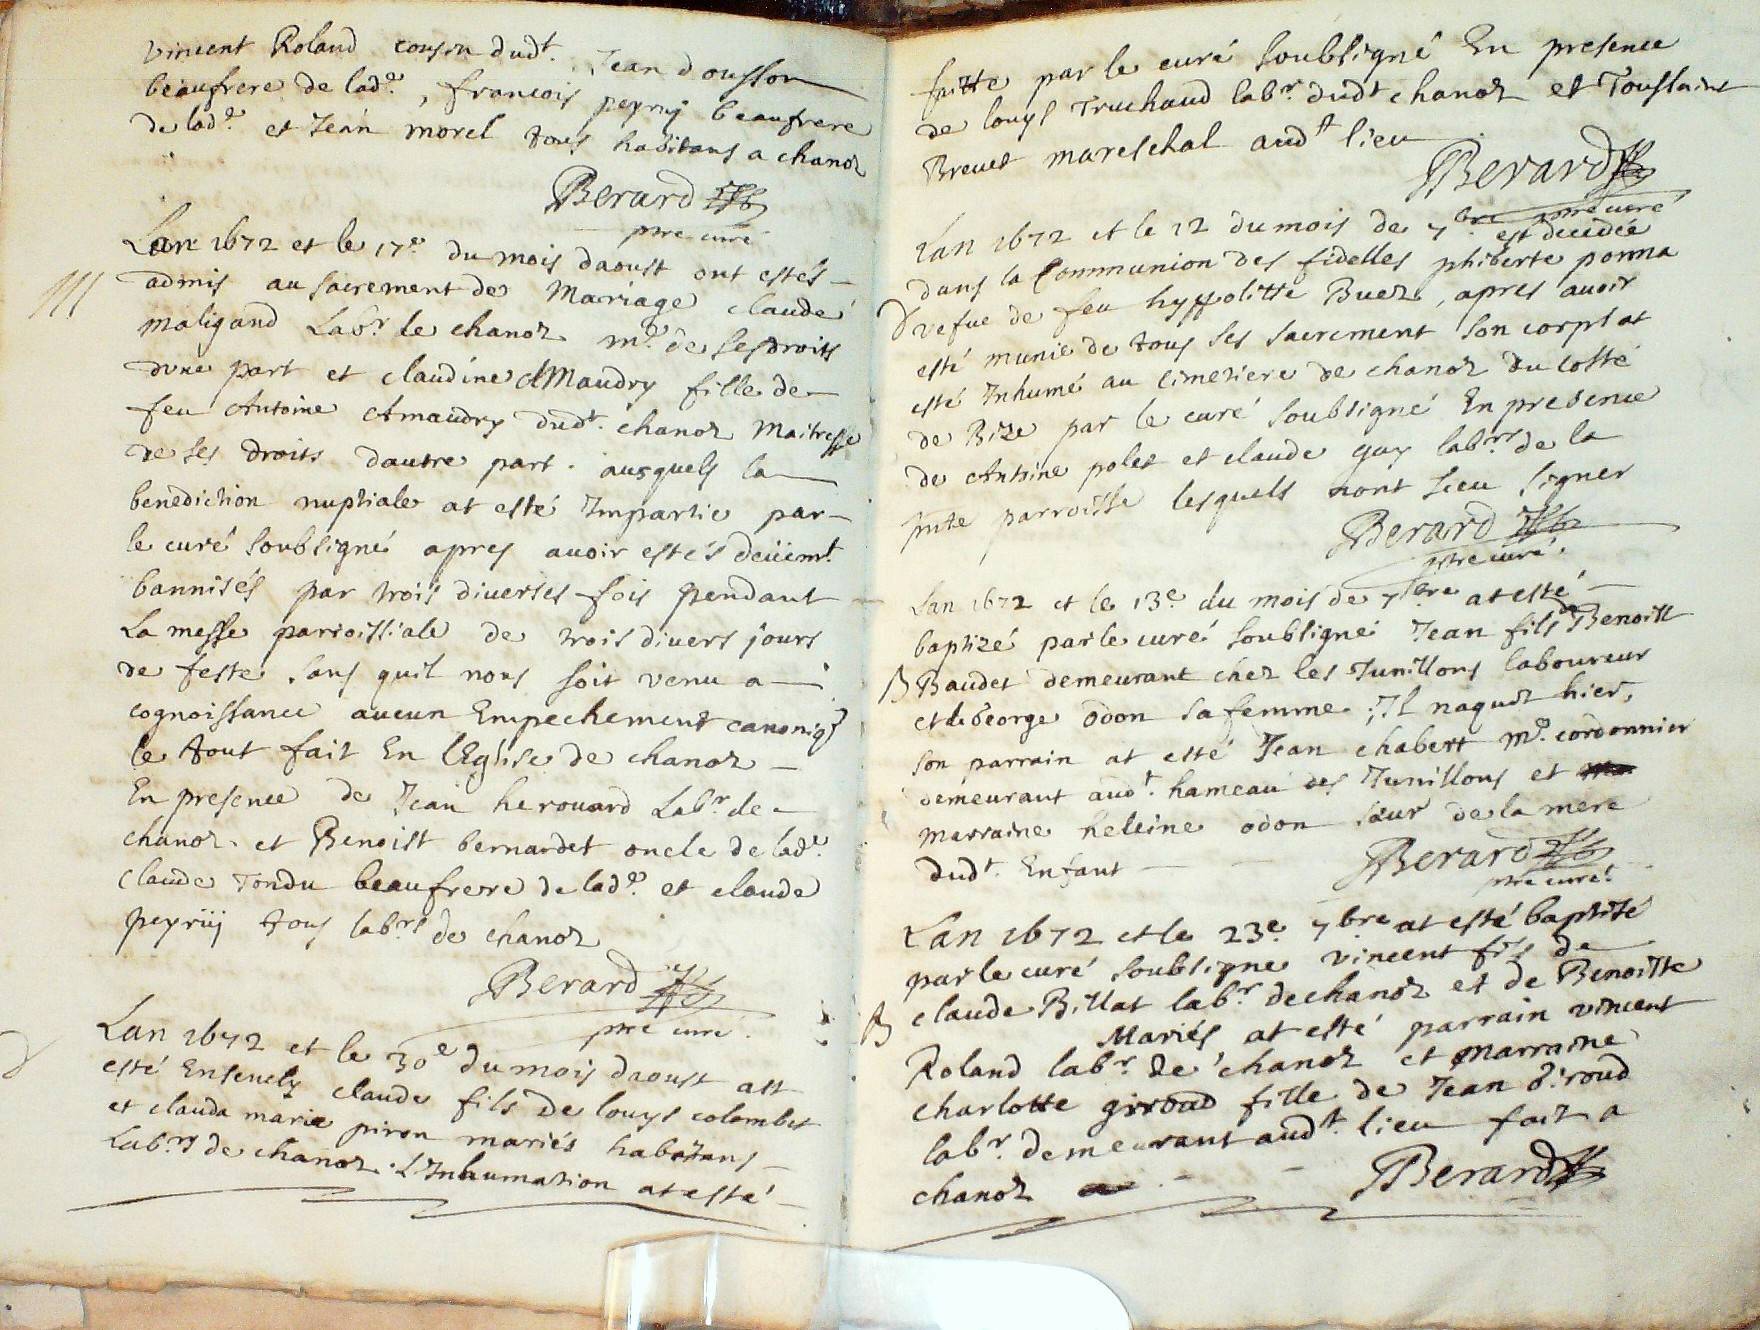 vincent Roland cousin dudt. Jean dousson
beaufrere de lade. , francois peyruy beaufrere
de lade. et Jean morel tous habitans a chanoz
Berard
ptre curé
Lan 1672 et le 17e du mois daoust ont estés
M
admis au sacrement de Mariage claude
maligand Labr. de chanoz me. de ses droits
dune part et claudine AMaudry fille de
feu Antoine Amaudry dudt. chanoz Maitresse
de ses droits dautre part. ausquels la
benediction nuptiale at esté Impartie par
le curé soubsigné apres avoir estés deüemt.
bannisés par trois diverses fois pendant
La messe parroissiale de trois divers jours
de feste, sans quil nous soit venu a
cognoissance aucun Empechement canoniq
le tout fait En lEglise de chanoz
En presence de Jean herouard Labr. de
chanoz. et Benoist bernardet oncle de lade.
claude Tondu beaufrere de lade. et claude
peyruy tous labrs. de chanoz
Berard
ptre curé
Lan 1672 et le 30e du mois daoust att
esté Ensevely claude fils de louys colombet
et clauda marie piron mariés habitans
Labrs. de chanoz. L'Inhumation at esté
faitte par le curé soubsigné En presence
de louys Truchaud labr. dudt chanoz et Toussaint
Brevet mareschal audt lieu
Berard
ptre curé
Lan 1672 et le 12 du mois de 7bre est decedée
dans la Communion des fidelles phiberte ponna
D vefue de feu hyppolitte Buez, apres avoir
esté munie de tous ses sacrement son corps at
esté Inhumé au cimetiere de chanoz du costé
de Bize par le curé soubsigné En presence
de Antoine polet et claude guy labrs. de la
pnte parroisse lesquels nont sceu signer
Berard
ptre curé.
Lan 1672 et le 13e. du mois de 7bre at esté
baptizé par le curé soubsigné Jean fils de Benoist
B Baudet demeurant chez les Junillons laboureur
et de George odon sa femme ; Il naquit hier,
son parrain at esté Jean chabert me. cordonnier
demeurant audt. hameau des Junillons et
marraine heleine odon sœur de la mere
dudt. Enfant
Berard
ptre curé.
Lan 1672 et le 23e. 7bre at esté baptisé
par le curé soubsigne vincent fils de
claude Billat labr. de chanoz et de Benoiste
B
Mariés at esté parrain vincent
Roland labr. de chanoz et marraine
charlotte giroud fille de Jean Giroud
labr. demeurant audt. lieu fait a
chanoz
Berard